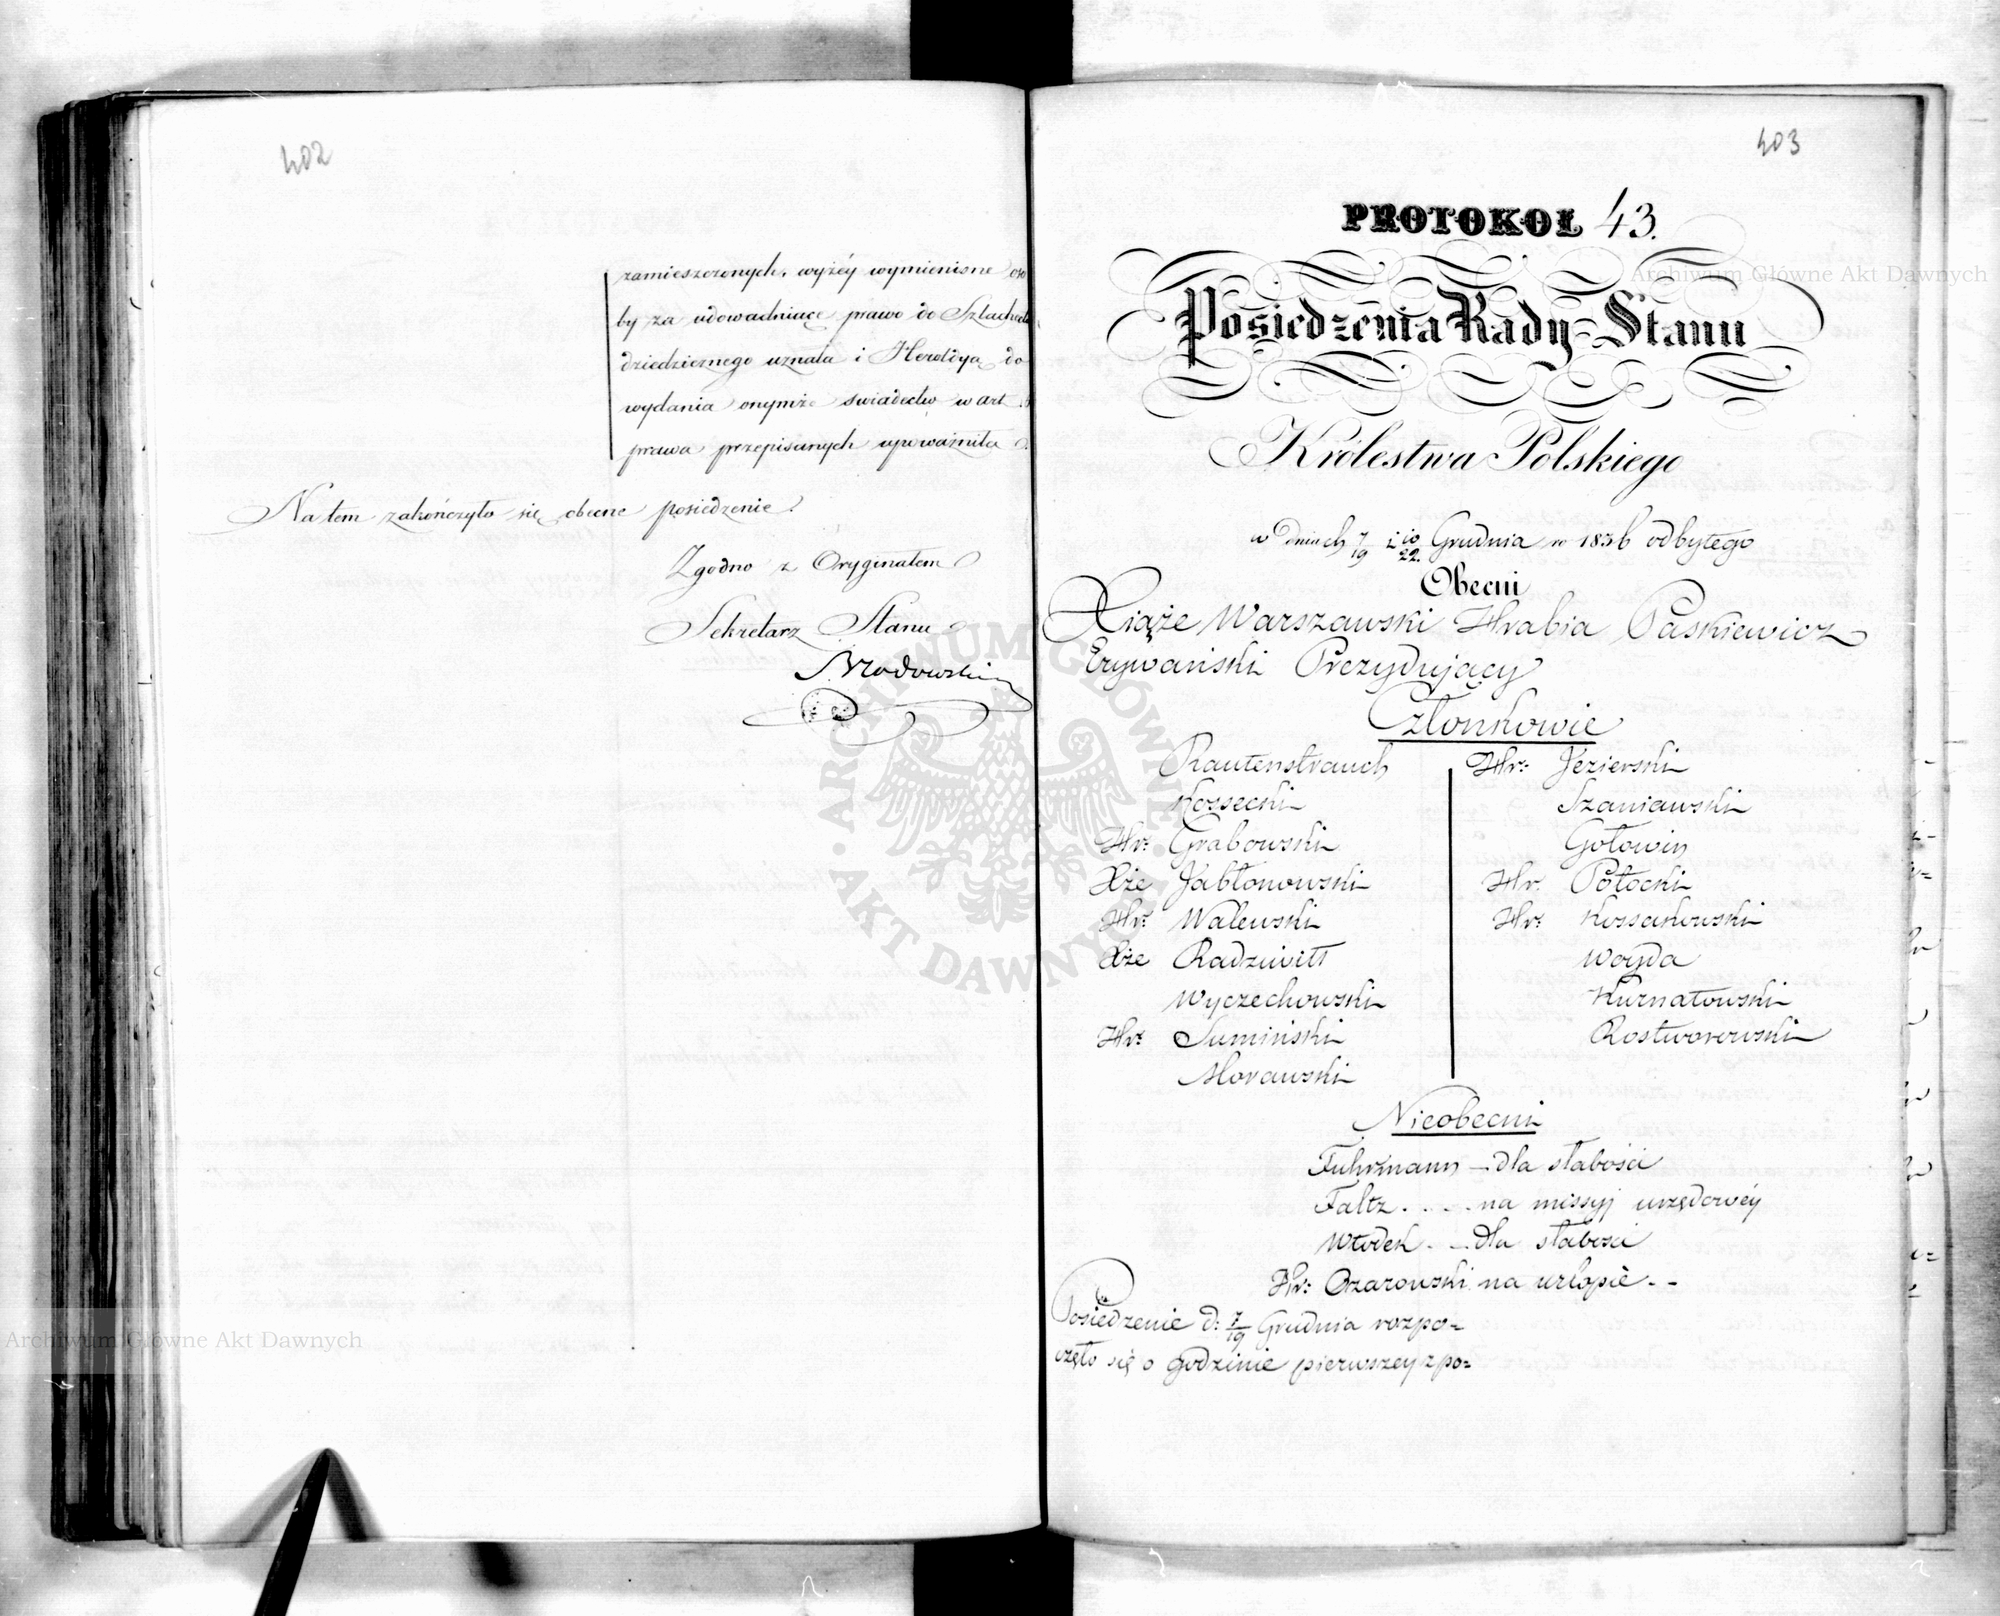 402
zamieszczonych, wyżéy wymienione oso
by za udowadniące prawo do Szlachec
dziedzicznego uznała i Heroldyą do
wydania onymże swiadectw w art.
prawa przepisanych upoważniła.
Na tem zakończyło się obecne posiedzenie.
Zgodno z Oryginałem
Sekretarz Stanu
Brodowski
403
PROTOKOŁ 43.
Posiedzenia Rady Stanu
Królestwa Polskiego
w dniach 7/19 i 10/22. Grudnia ro 1836 odbytego
Obecni
Xiąże Warszawski Hrabia Paskiewicz
Erywański Prezydujący
Członkowie
Rautenstrauch
Kossecki
Hr: Grabowski
Xże Jabłonowski
Hr: Walewski
Xże Radziwiłł
Wyczechowski
Hr: Sumiński
Morawski
Hr: Jezierski
Szaniawski
Gołowin
Hr. Potocki
Hr: Kossakowski
Woyda
Kurnatowski
Rostworowski
Nieobecni
Fuhrmann – dla słabości
Faltz . . . . na missyj urzędowéy
Włodek . – dla słabości
Hr: Ozarowski na urlopie. –
Posiedzenie d: 7/19 Grudnia rozpo=
częło się o godzinie pierwszey z po=
Archiwum Główne Akt Dawnych
Archiwum Główne Akt Dawnych
ARCHIWUM GŁÓWNE AKT DAWNYCH